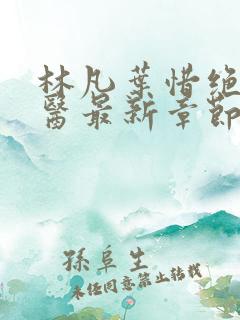 林凡葉惜绝
醫最新章節
孫阜生
未经同意禁止转载